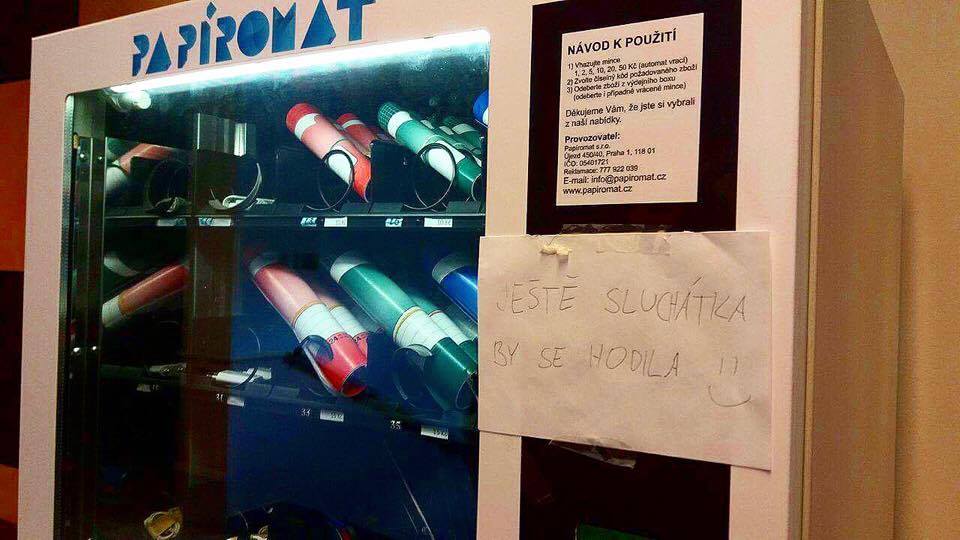 PAPÍROMAT
NÁVOD K POUŽITÍ
1) Vhazujte mince
1, 2, 5, 10, 20, 50 Kč (automat vrací)
2) Zvolte číselný kód požadovaného zboží
3) Odeberte zboží z výdejního boxu
(odeberte i případně vrácené mince)
Děkujeme Vám, že jste si vybrali
z naší nabídky.
Provozovatel:
Papiromat s.r.o.
Újezd 450/40, Praha 1, 118 01
IČO: 05401721
Reklamace: 777 922 039
E-mail: info@papiromat.cz
www.papiromat.cz
JEŠTĚ SLUCHÁTKA
BY SE HODILA :)
31
33
35